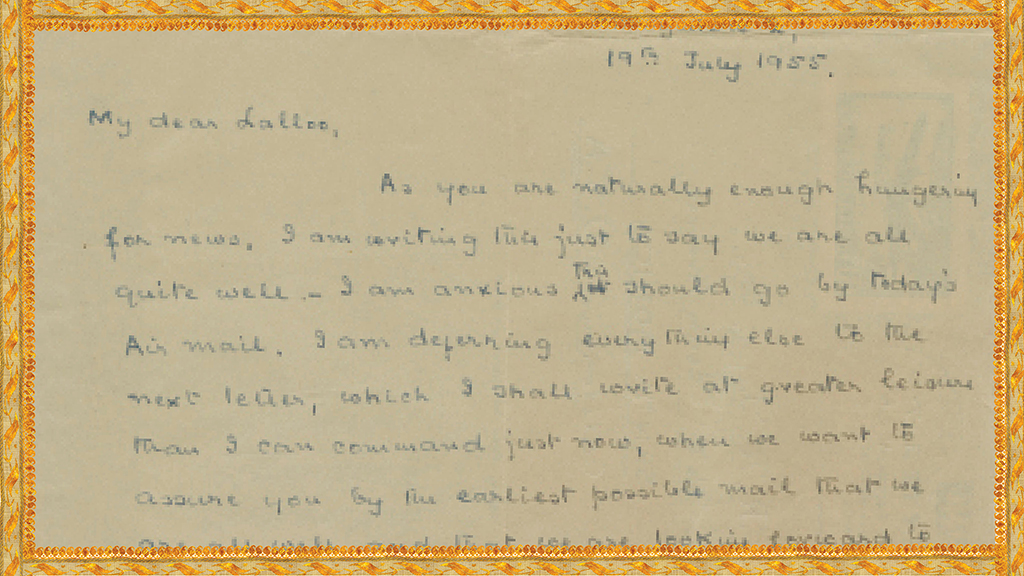 19th July 1955.
My dear Lalloo,
As you are naturally enough hungering
for news, I am writing this just to say we are all
quite well. – I am anxious this should go by today's
Air mail. I am deferring everything else to the
next letter, which I shall write at greater leisure
than I can command just now, when we want to
assure you by the earliest possible mail that we
are all well and that we are looking forward to